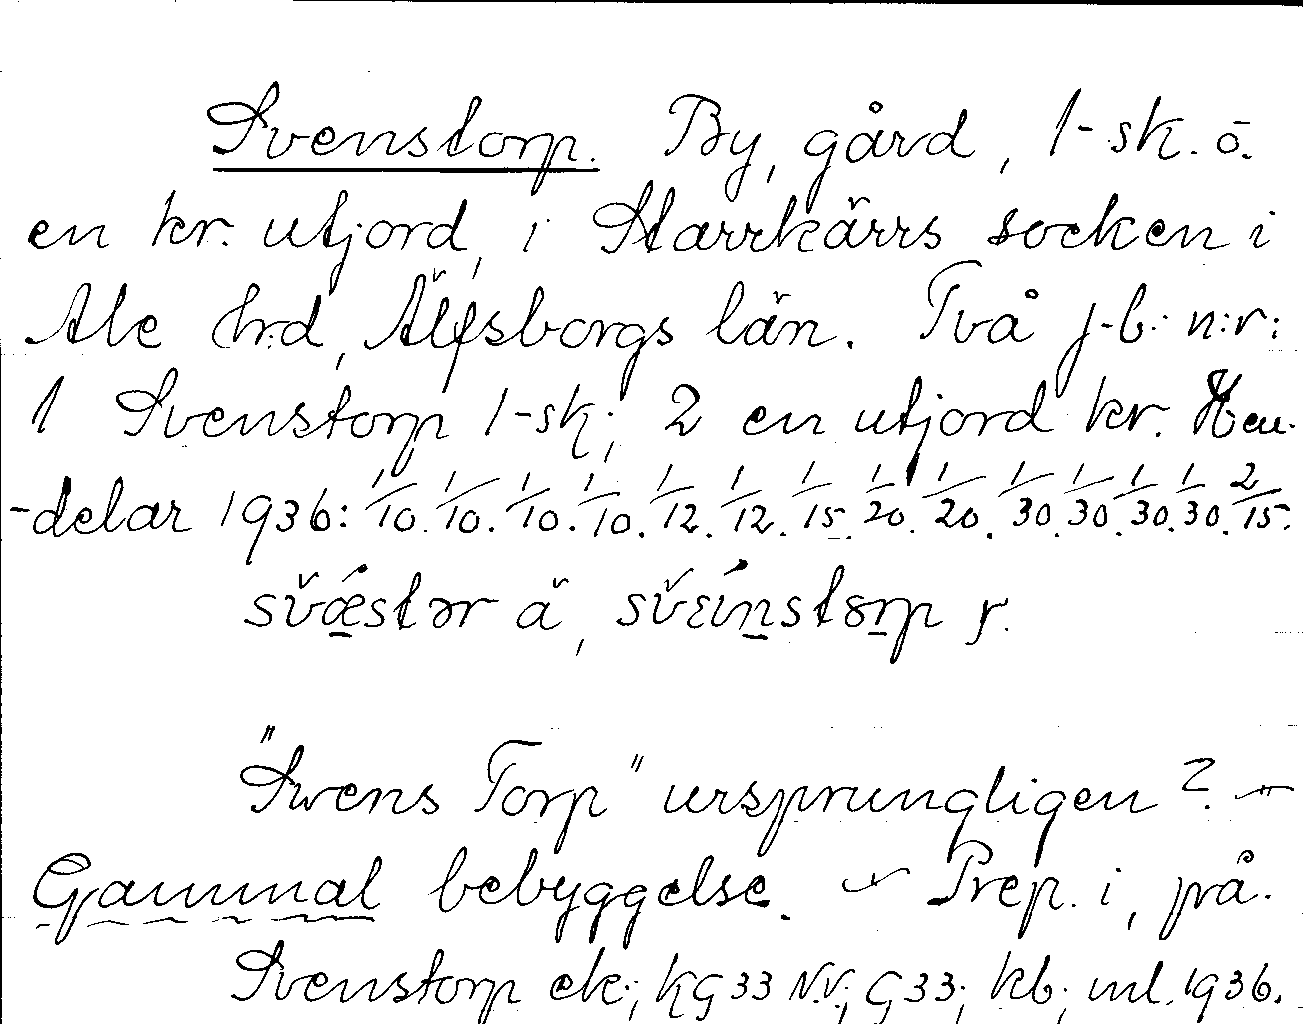 Svenstorp. By, gård, 1-sk. o.
en kr. utjord, i Starrkärrs socken i
Ale hrd, Älfsborgs län. Två j.-b. n:r:
1 Svenstorp 1-sk; 2 en utjord kr. Hem-
-delar 1936: 1/10. 1/10. 1/10. 1/10. 1/12. 1/12. 1/15. 1/20. 1/20. 1/30. 1/30. 1/30. 1/30. 2/15.
ä,
"Swens Torp" ursprungligen? —
Gammal bebyggelse. — Prep. i, på.
Svenstorp ek; KG33 N.V.; G33; kb; ml. 1936.